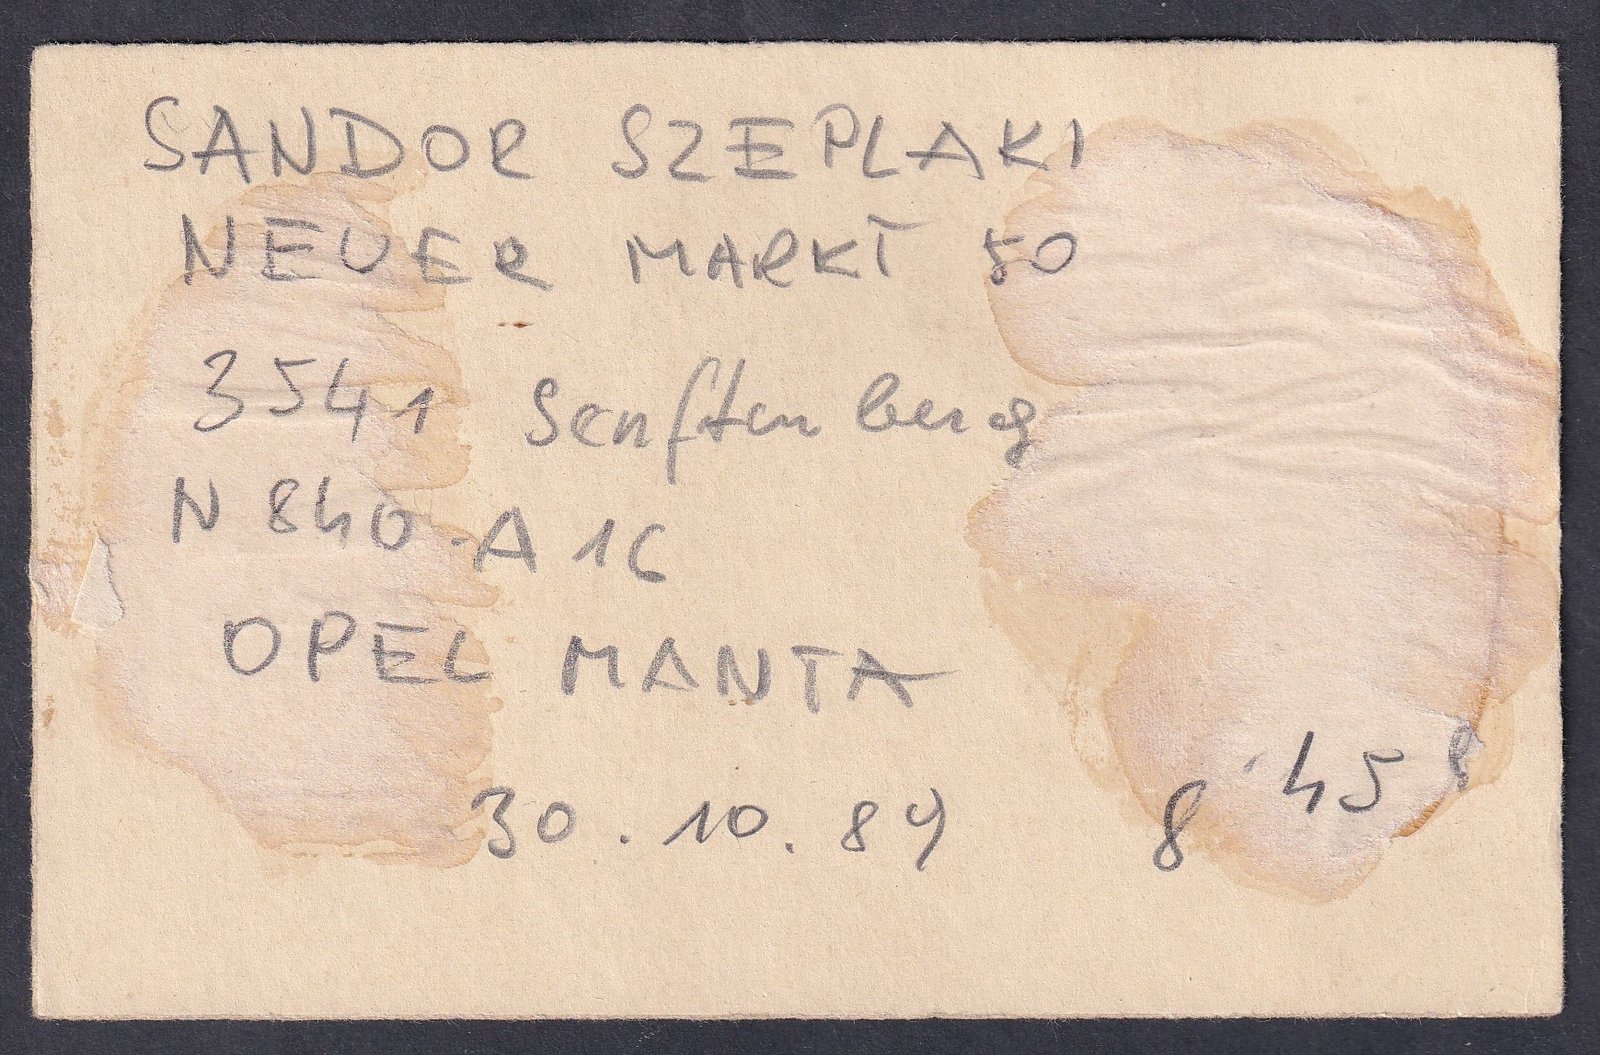 SANDOR SZEPLAKI
NEUER MARKT 50
3541 Senftenberg
N 840.A 16
OPEL MANTA
30.10.89 8 45